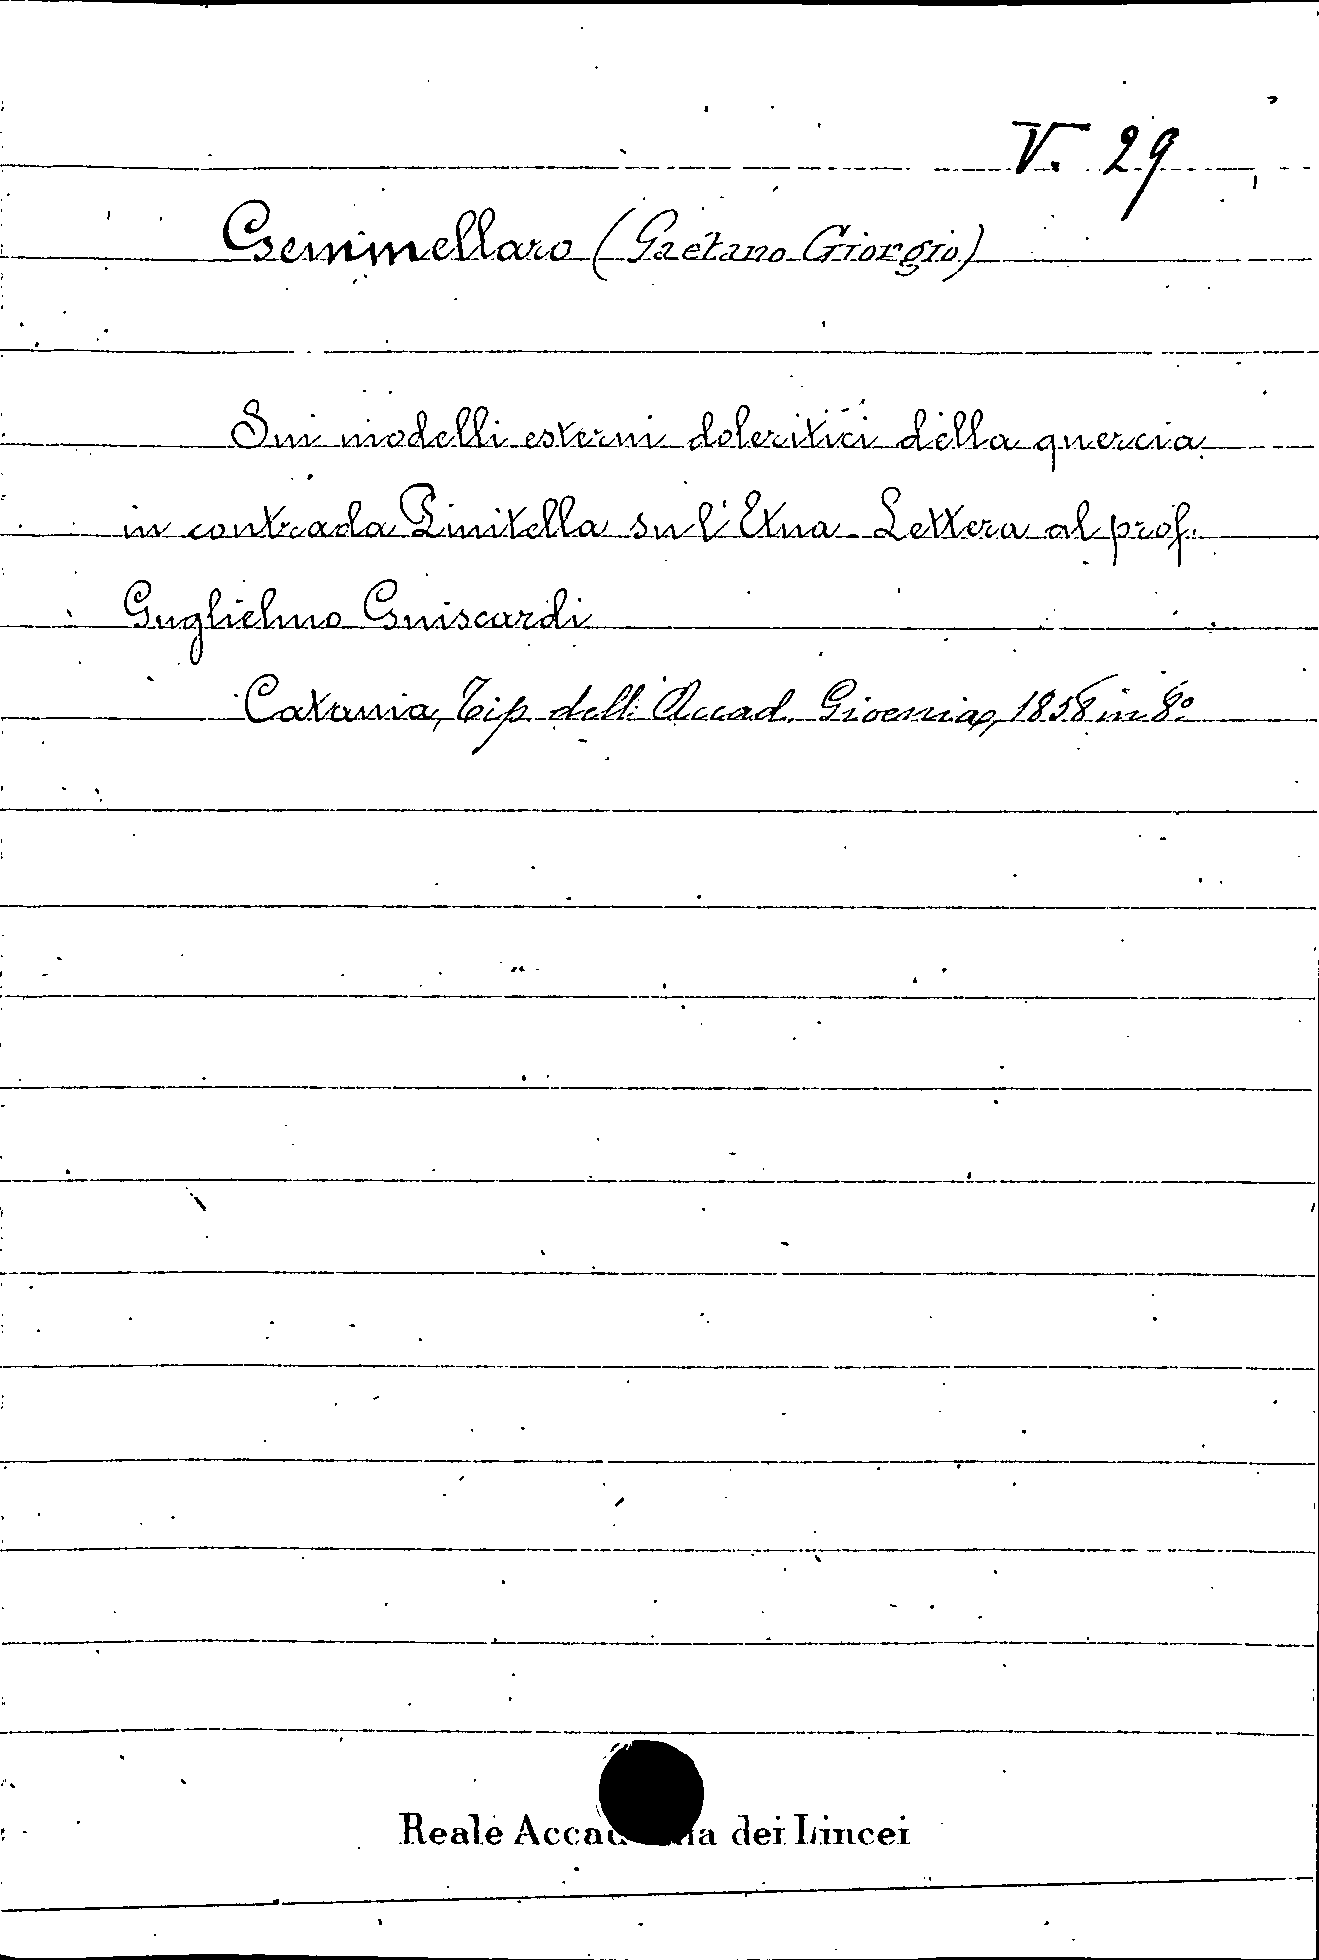 V. 29
Gemmellaro (Gaetano Giorgio)
Sui modelli esterni doleritici della quercia
in contrada Pinitella sul'Etna. Lettera al prof.
Guglielmo Guiscardi
Catania, Tip. dell'Accad. Gioenia, 1858 in 8º
Reale Accademia dei Lincei